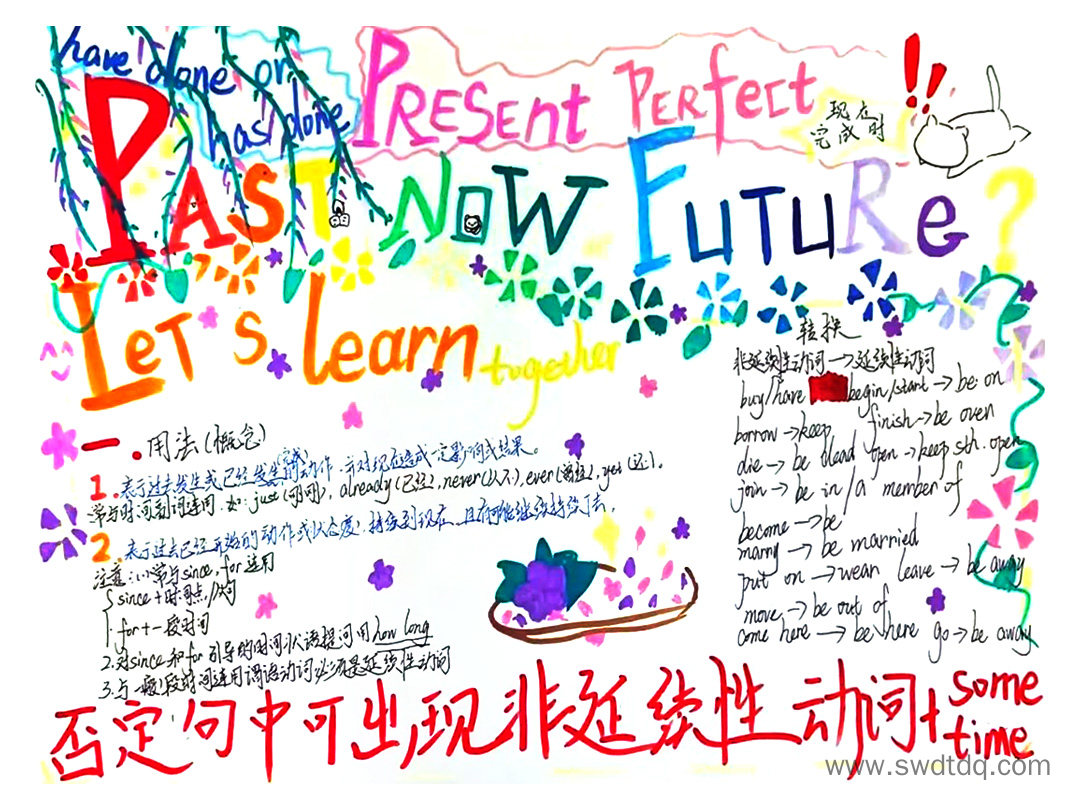 have done or
has done
PRESENT PERfect
现在
完成时
PAST NOW FUTURe ?
LeT's learn
together
一.用法(概念)
1.表示过去发生或已经发生(完成)的动作,并对现在造成一定影响或结果。
常与时间副词连用.如:just(刚刚),already(已经),never(从不),ever(曾经),yet(还).
2.表示过去已经开始的动作或状态,持续到现在,且有可能继续持续下去,
注意:(1)常与since,for连用
since+时间点/从句
for+一段时间
2.对since和for引导的时间状语提问用how long
3.与一段时间连用谓语动词必须是延续性动词
转换
非延续性动词→延续性动词
buy/have begin/start→be on
borrow→keep finish→be over
die→be dead open→keep sth. open
join→be in/a member of
become→be
marry→be married
put on→wear leave→be away
move→be out of
come here→be here go→be away
否定句中可出现非延续性动词+some
time
www.swdtdq.com